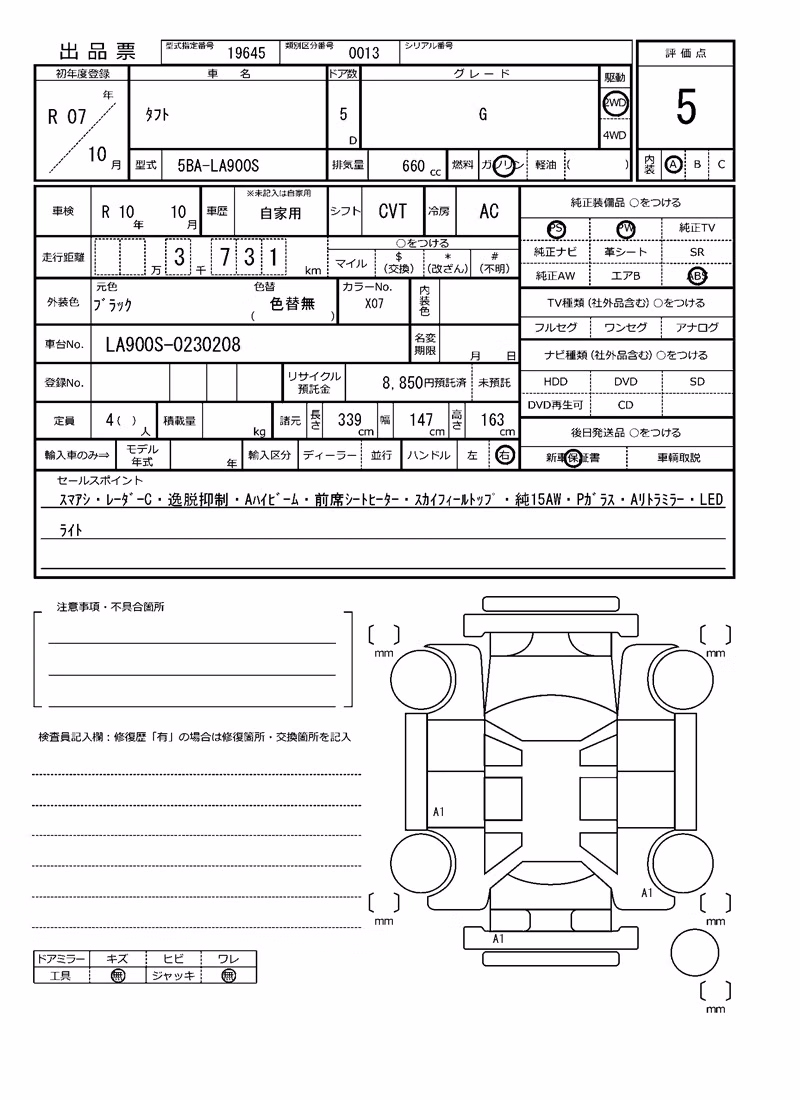 出品票 型式指定番号 19645 類別区分番号 0013 シリアル番号
評価点
初年度登録 車名 ドア数 グレード 駆動
R 07 年 10 月 ﾀﾌﾄ 5 D G 2WD 4WD 5
型式 5BA-LA900S 排気量 660 cc 燃料 ガソリン 軽油 ( ) 内装 A B C
車検 R 10 年 10 月 車歴 ※未記入は自家用 自家用 シフト CVT 冷房 AC
走行距離 万 3 千 7 3 1 km ○をつける
マイル $ (交換) * (改ざん) # (不明)
外装色 元色 ﾌﾞﾗｯｸ 色替 ( 色替無 ) カラーNo. X07 内装色
車台No. LA900S-0230208 名変期限 月 日
登録No. リサイクル預託金 8,850円預託済 未預託
定員 4 ( ) 人 積載量 kg 諸元 長さ 339 cm 幅 147 cm 高さ 163 cm
輸入車のみ⇒ モデル年式 年 輸入区分 ディーラー 並行 ハンドル 左 右
純正装備品 ○をつける
PS PW 純正TV
純正ナビ 革シート SR
純正AW エアB ABS
TV種類 (社外品含む) ○をつける
フルセグ ワンセグ アナログ
ナビ種類 (社外品含む) ○をつける
HDD DVD SD
DVD再生可 CD
後日発送品 ○をつける
新車保証書 車輌取説
セールスポイント
ｽﾏｱｼ・ﾚｰﾀﾞｰC・逸脱抑制・Aﾊｲﾋﾞｰﾑ・前席ｼｰﾄﾋｰﾀｰ・ｽｶｲﾌｨｰﾙﾄｯﾌﾟ・純15AW・Pｶﾞﾗｽ・Aﾘﾄﾗﾐﾗｰ・LED
ﾗｲﾄ
注意事項・不具合箇所
検査員記入欄：修復歴「有」の場合は修復箇所・交換箇所を記入
ドアミラー キズ ヒビ ワレ
工具 無 ジャッキ 無
mm mm
A1
A1
mm mm
A1
mm